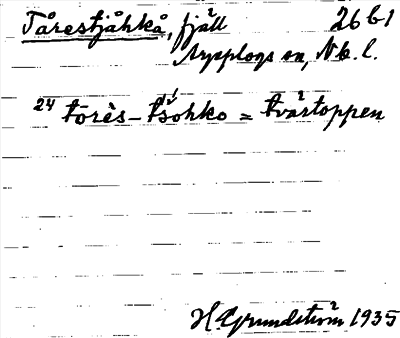 Tårestjåhkå, fjäll 26b1
Arjeplogs sn, Nb. l.
24 tōrès-tšohko = tvärtoppen
H. Grundström 1935